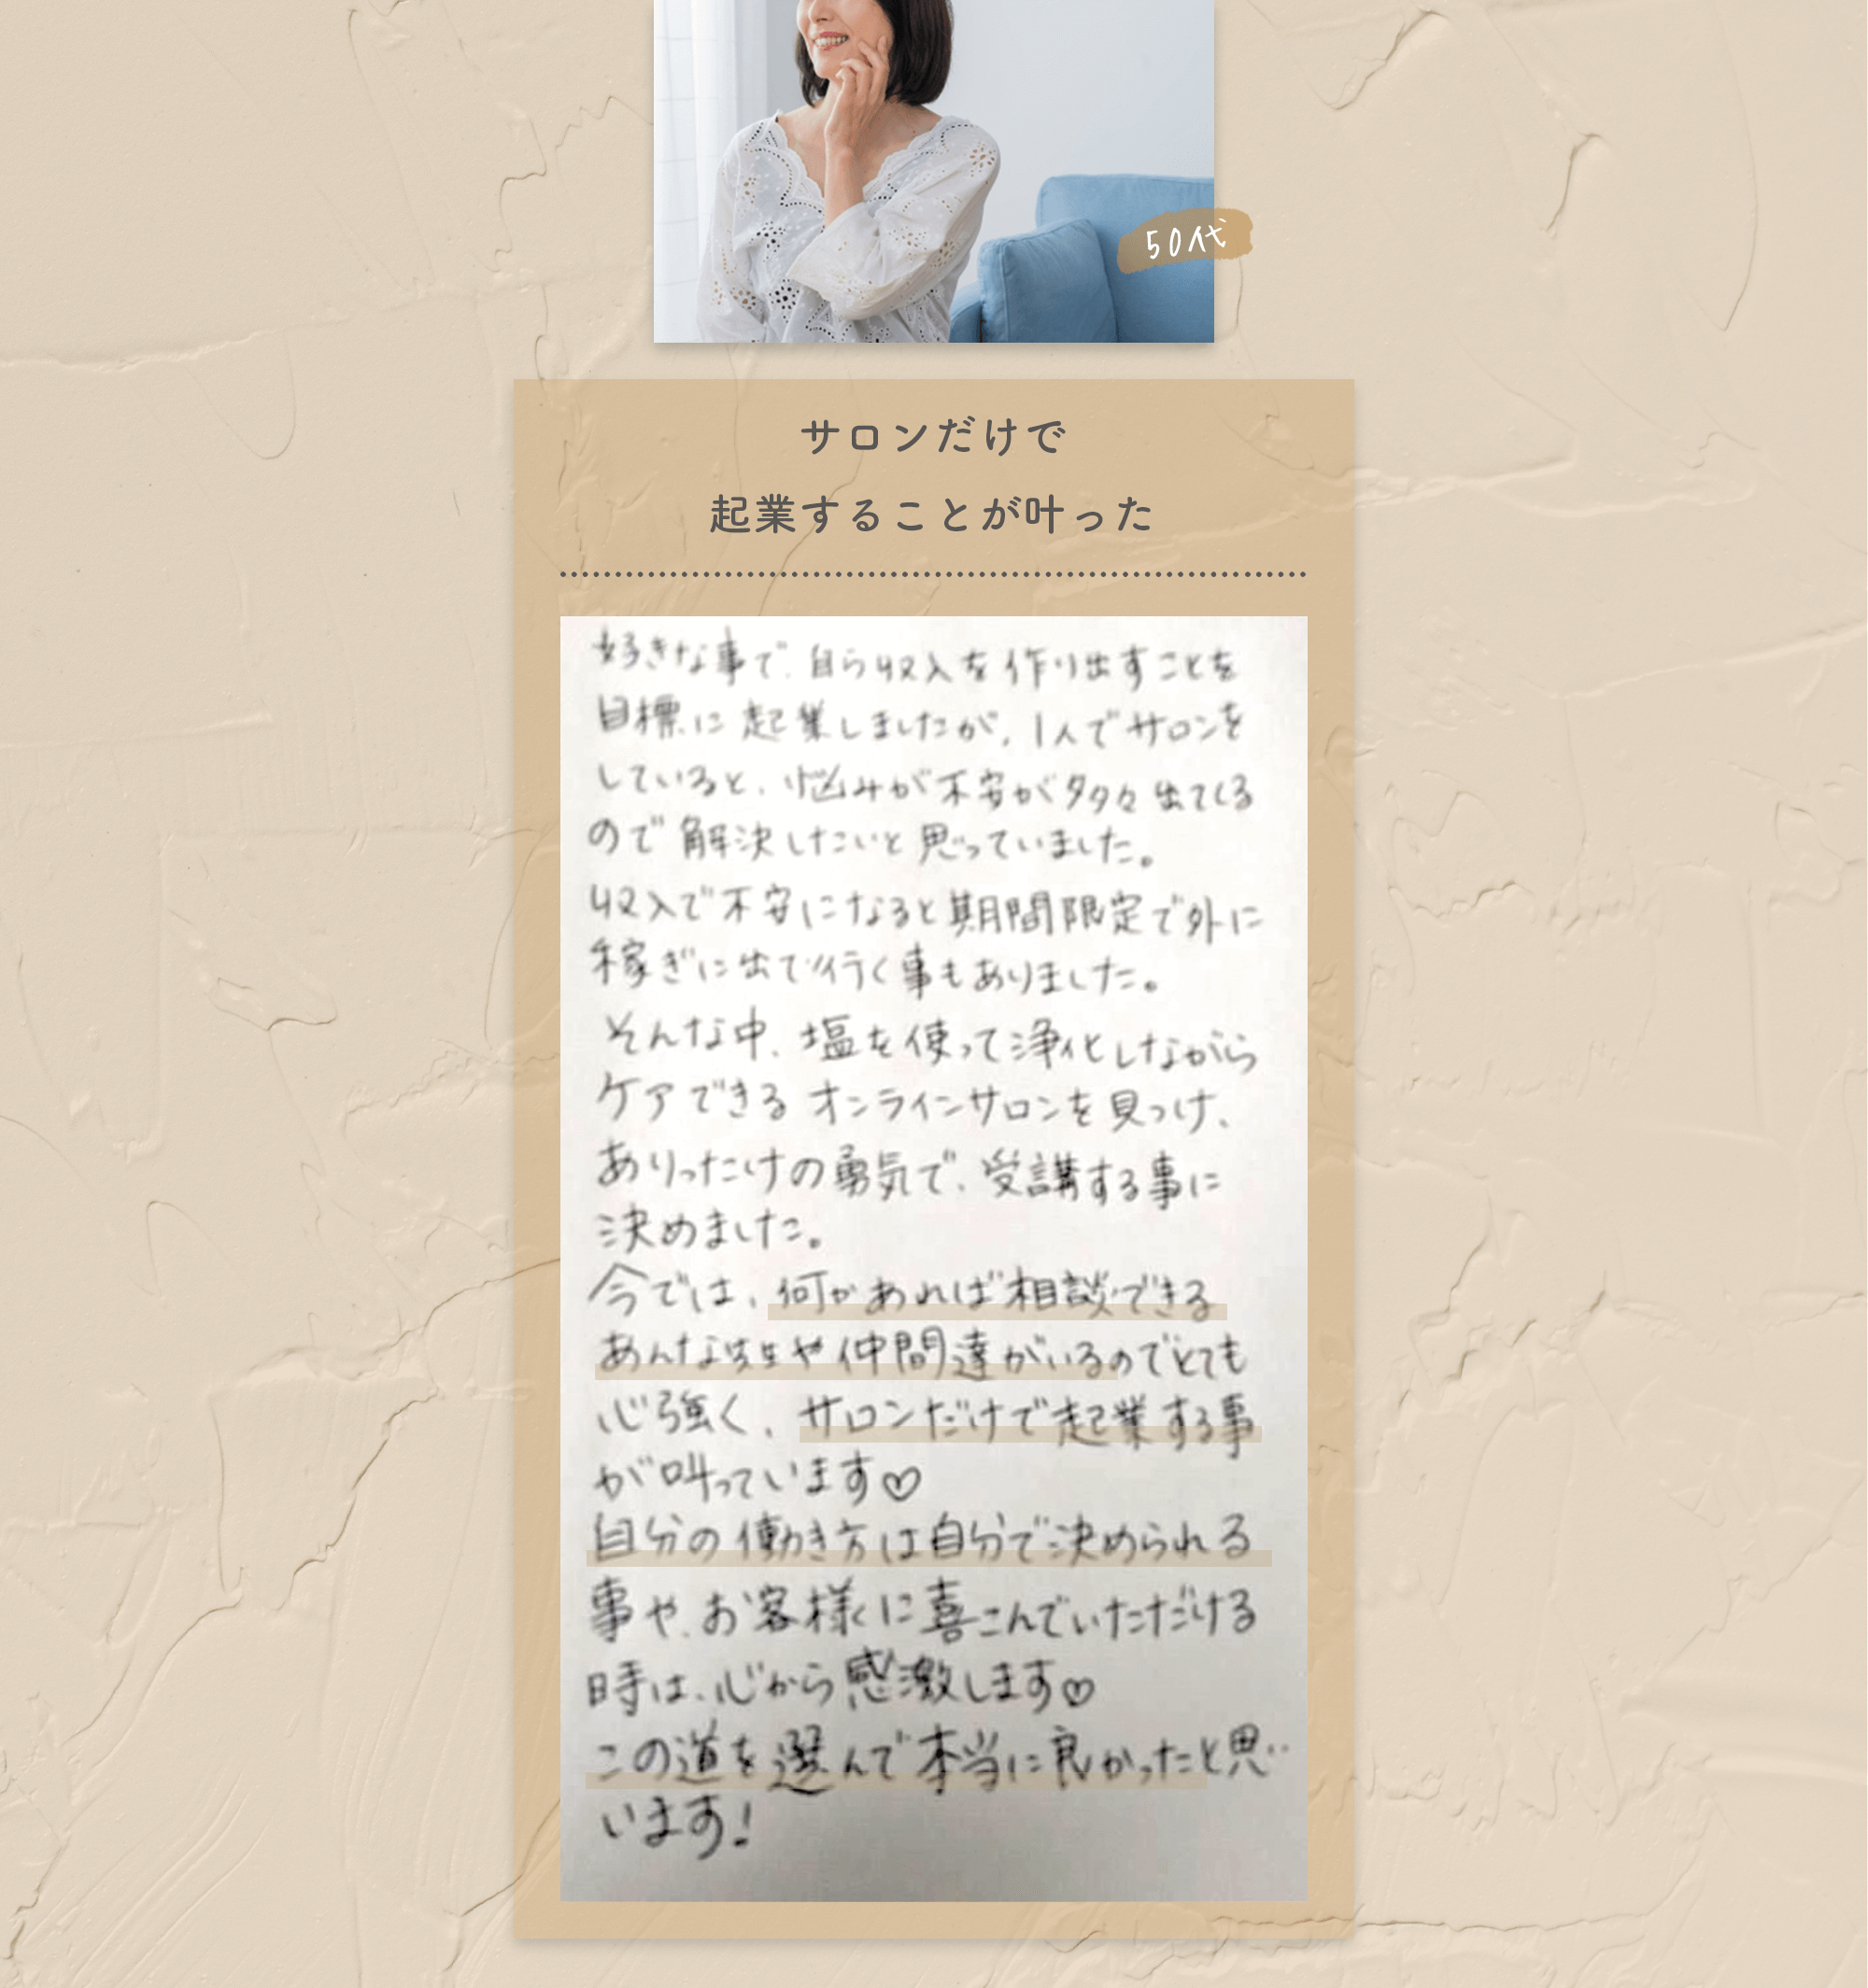 50代
サロンだけで
起業することが叶った
好きな事で、自ら収入を作り出すことを
目標に起業しましたが、1人でサロンを
していると、悩みが不安が多々出てくる
ので解決したいと思っていました。
収入で不安になると期間限定で外に
稼ぎに出て行く事もありました。
そんな中、塩を使って浄化しながら
ケアできるオンラインサロンを見つけ、
ありったけの勇気で、受講する事に
決めました。
今では、何かあれば相談できる
あんな先生や仲間達がいるのでとても
心強く、サロンだけで起業する事
が叫っています♡
自分の働き方は自分で決められる
事や、お客様に喜こんでいただける
時は、心から感激します♡
この道を選んで本当に良かったと思
います!